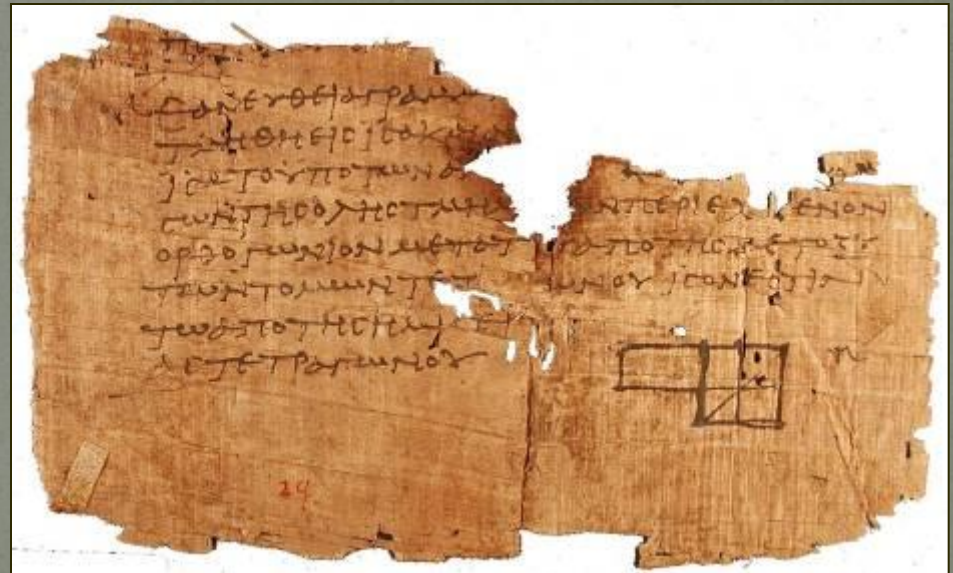 ϹΑΝ ΕΥΘΕΙΑ ΓΡΑΜΜ
ΤΜΗΘΗ ΕΙϹ ΙϹΑ ΚΑΙ
ΙϹΑ ΤΟ ΥΠΟ ΤΩΝ
ϹΩΝ ΤΗϹ ΟΛΗϹ ΤΜΗ ΩΝ ΠΕΡΙΕΧΟΜΕΝΟΝ
ΟΡΘΟΓΩΝΙΟΝ ΜΕΤΑ ΤΟΥ ΑΠΟ ΤΗϹ ΜΕΤΟΞΥ
ΤΩΝ ΤΟΜΩΝ ΤΕΤ ΩΝΟΥ ΙϹΟΝ ΕϹΤΙΝ
ΤΩ ΑΠΟ ΤΗϹ ΗΜΙϹΕΙ
ΑϹ ΤΕΤΡΑΓΩΝΟΥ
29